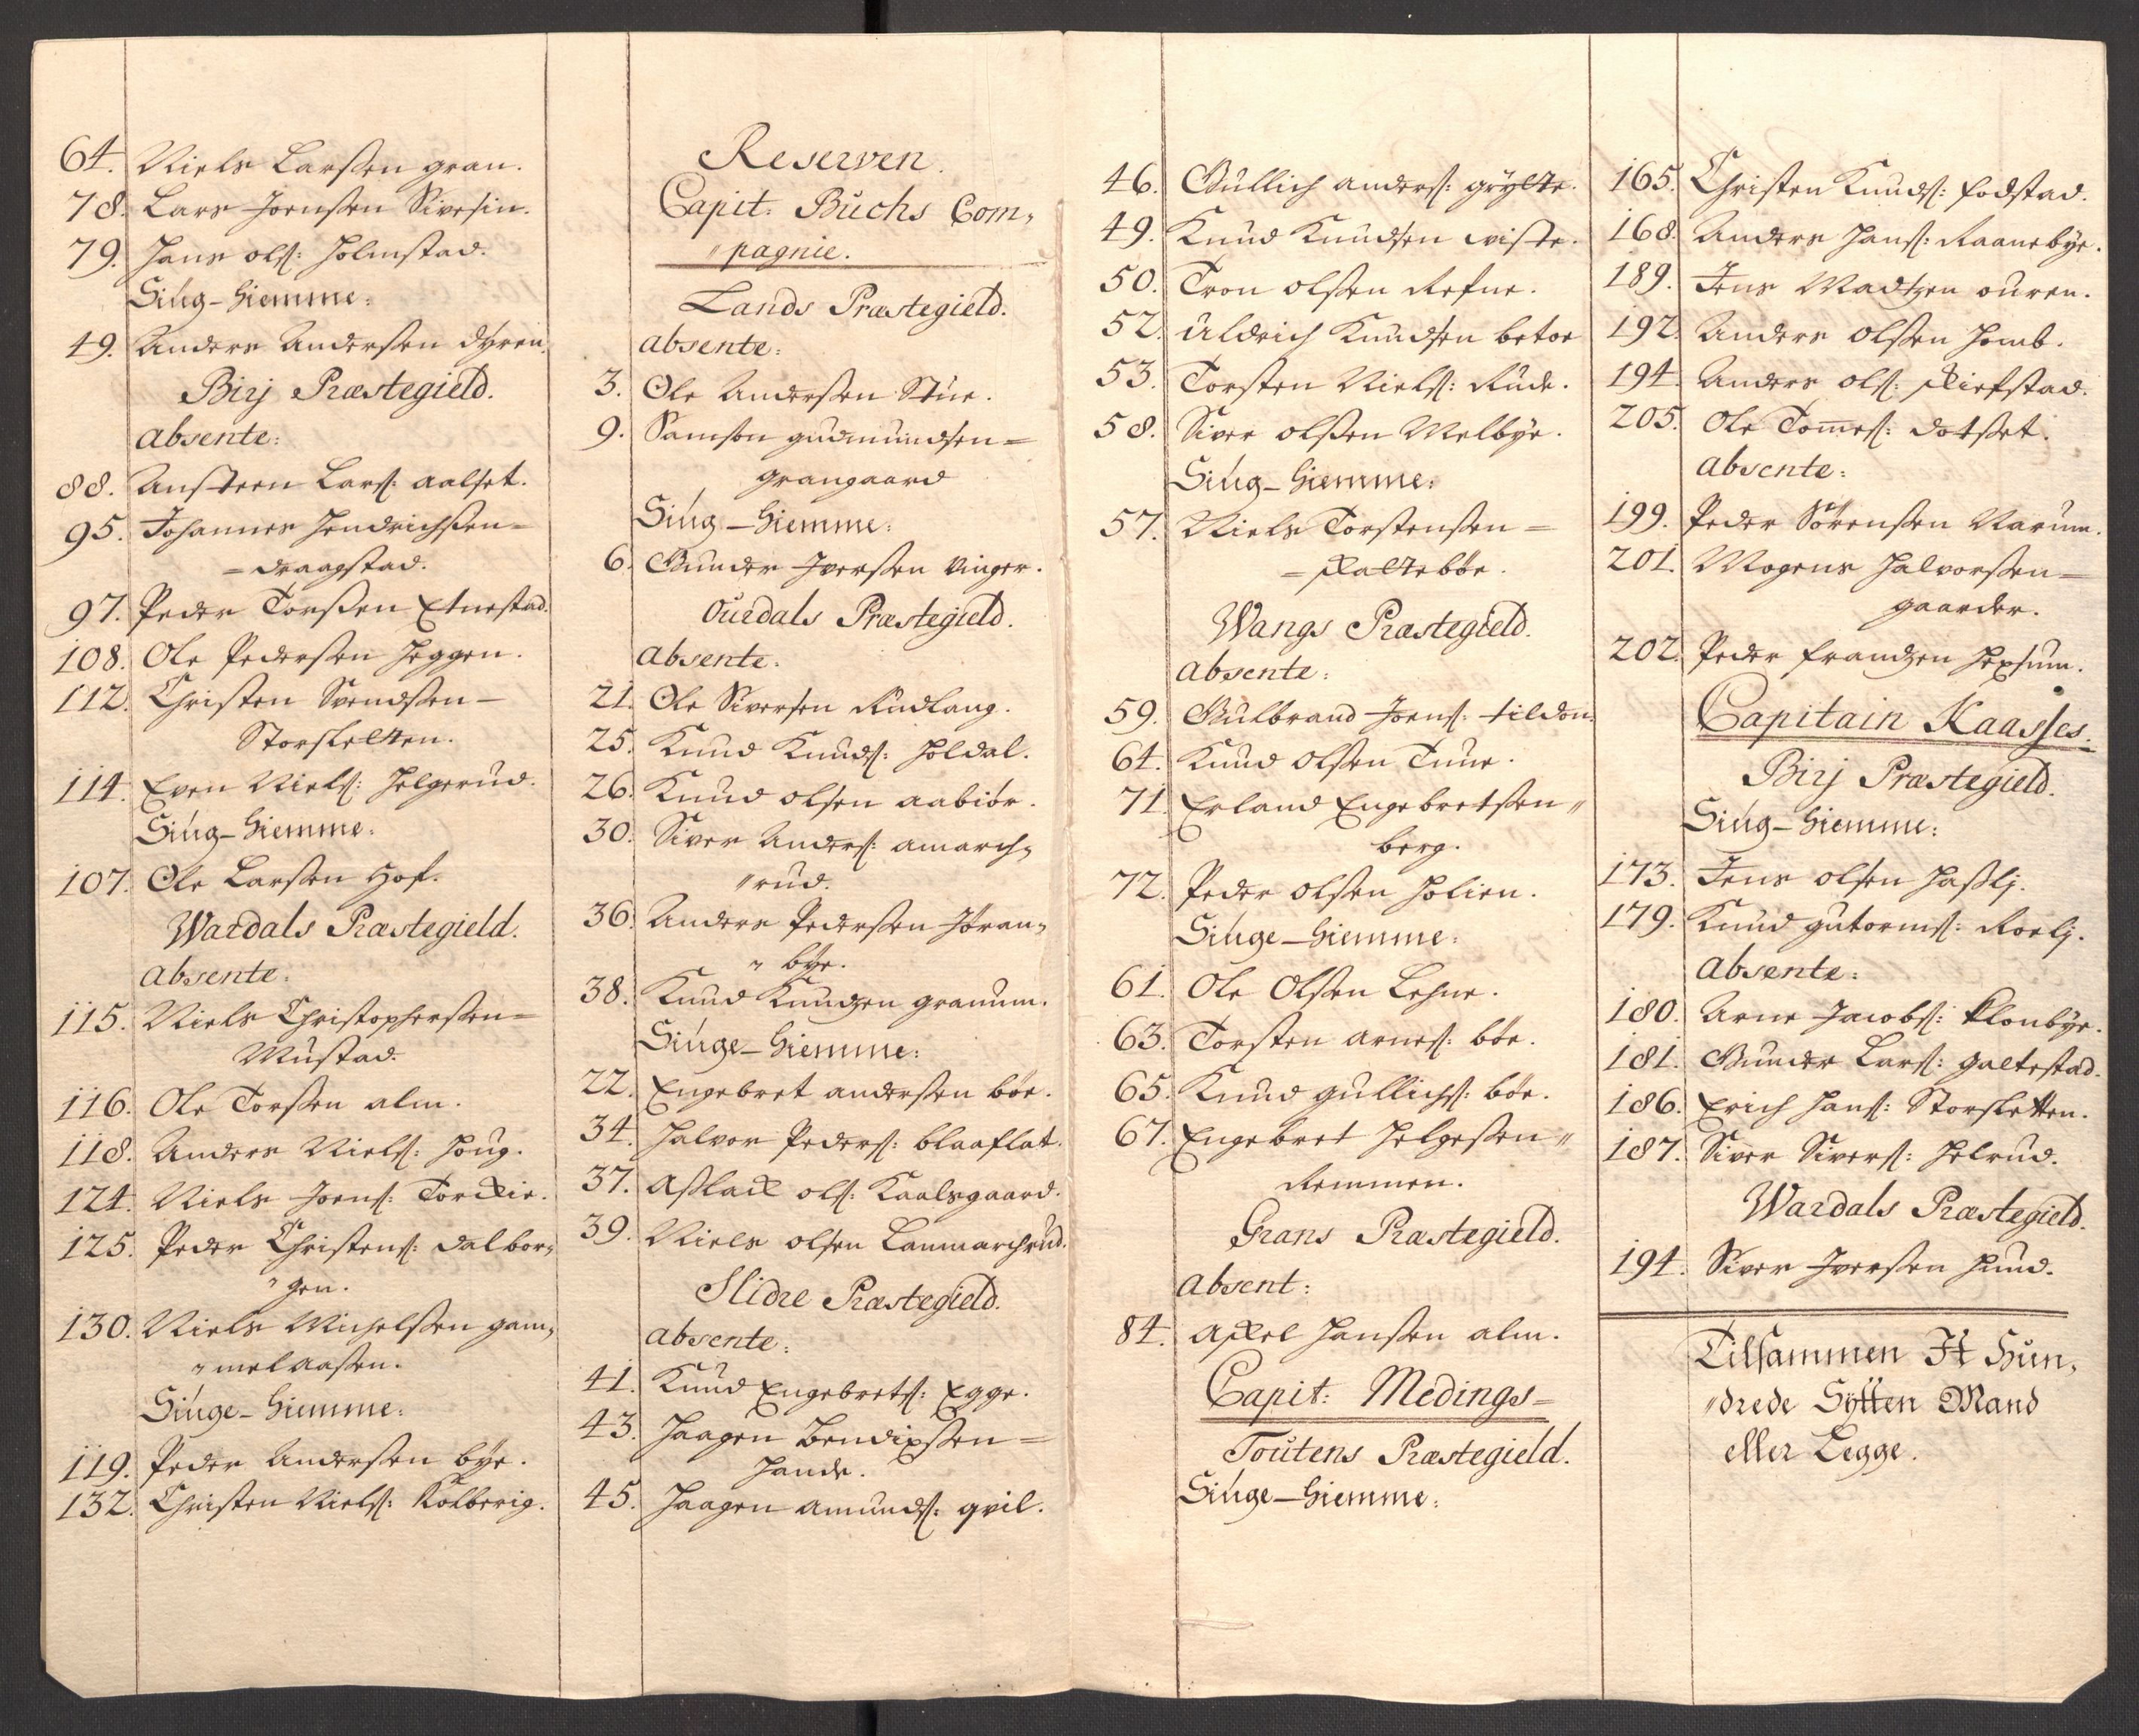 64. Niels Larssen gran.
78. Lars Joensen Sivesin.
79. Hans ols: Holmstad.
Siug-hiemme:
49. Anders Andersen dyren.
Birj Præstegield.
absente:
88. Ansteen Lars: aalset.
95. Johannes Hendrichsen=
=draagstad.
97. Peder Torssen Etnestad.
108. Ole Pedersen Heggen.
112. Christen Svendsen-
Storsletten.
114. Even Niels: Helgerud.
Siug-hiemme:
107. Ole Larssen Hof.
Wardals Præstegield.
absente:
115. Niels Christophersen=
Mustad.
116. Ole Torssen alm.
118. Anders Niels: Houg.
124. Niels Joens: Torckie.
125. Peder Christens: dalbor„
„gen.
130. Niels Michelssen gam„
„melaasen.
Siuge-hiemme:
119. Peder Andersen bye.
132. Christen Niels: Kolberig.
Reserven.
Capit: Buchs Com„
„pagnie.
Lands Præstegield.
absente:
3. Ole Andersen Stue.
9. Samson gudmundsen=
grangaard
Siug-hiemme:
6. Gunder Iversen vinger.
Ourdals Præstegield.
absente:
21. Ole Siversen Rudlang.
25. Knud Knuds: Holdal.
26. Knud olsen aabiør.
30. Siver Anders: amarch„
„rud.
36. Anders Pedersen Jöran„
„bye.
38. Knud Knudzen granum.
Siuge-hiemme:
22. Engebret andersen bøe.
34. Halvor Peders: blaaflat.
37. Asslack ols: Kaalsgaard.
39. Niels olsen Lanmarchrud.
Slidre Præstegield.
absente:
41. Knud Engebrets: Egge.
43. Haagen Bendixsen=
Hande.
45. Haagen amunds: qvil.
46. Gullich anders: grytte.
49. Knud Knudsen viste.
50. Tron olsen Refne.
52. Uldrich Knudsen betoe
53. Torsten Niels: Rude.
58. Siver olsen Melbye.
Siug-hiemme:
57. Niels Torstensen=
=Kaltebøe.
Wangs Præstegield.
absente:
59. Gulbrand Joens: tildon.
64. Knud olsen Tune.
71. Erland Engebretsen„
berg.
72. Peder olsen Holien.
Siuge-hiemme:
61. Ole Olsen Lehne.
63. Torsten arnes: bøe.
65. Knud gullichs: bøe.
67. Engebret Helgesen„
Remmen.
Grans Præstegield.
absent:
84. Axel Hansen alm.
Capit: Medings=
Toutens Præstegield.
Siuge-hiemme:
165. Christen Knuds: fodstad.
168. Anders Hans: Raanebye.
189. Jens Madtzen ouren.
192. Anders olsen Homb.
194. Anders ols: Kiefstad.
205. Ole Tommes: dotset.
absente:
199. Peder Sørensen Narum.
201. Mogens Halvorsen=
gaarder.
202. Peder frandzen Hexum.
Capitain Kaasses.
Birj Præstegield.
Siug-hiemme:
173. Jens olsen Hasslj.
179. Knud gutorms: Roelj.
absente:
180. Arne Jacobs: Klonbye.
181. Gunder Lars: galtestad.
186. Erich Hans: Storsletten.
187. Siver Sivers: Helrud.
Wardals Præstegield.
194. Siver Iversen Hund.
Tilsammen It Hun„
„drede Sytten Mand
eller Legge.